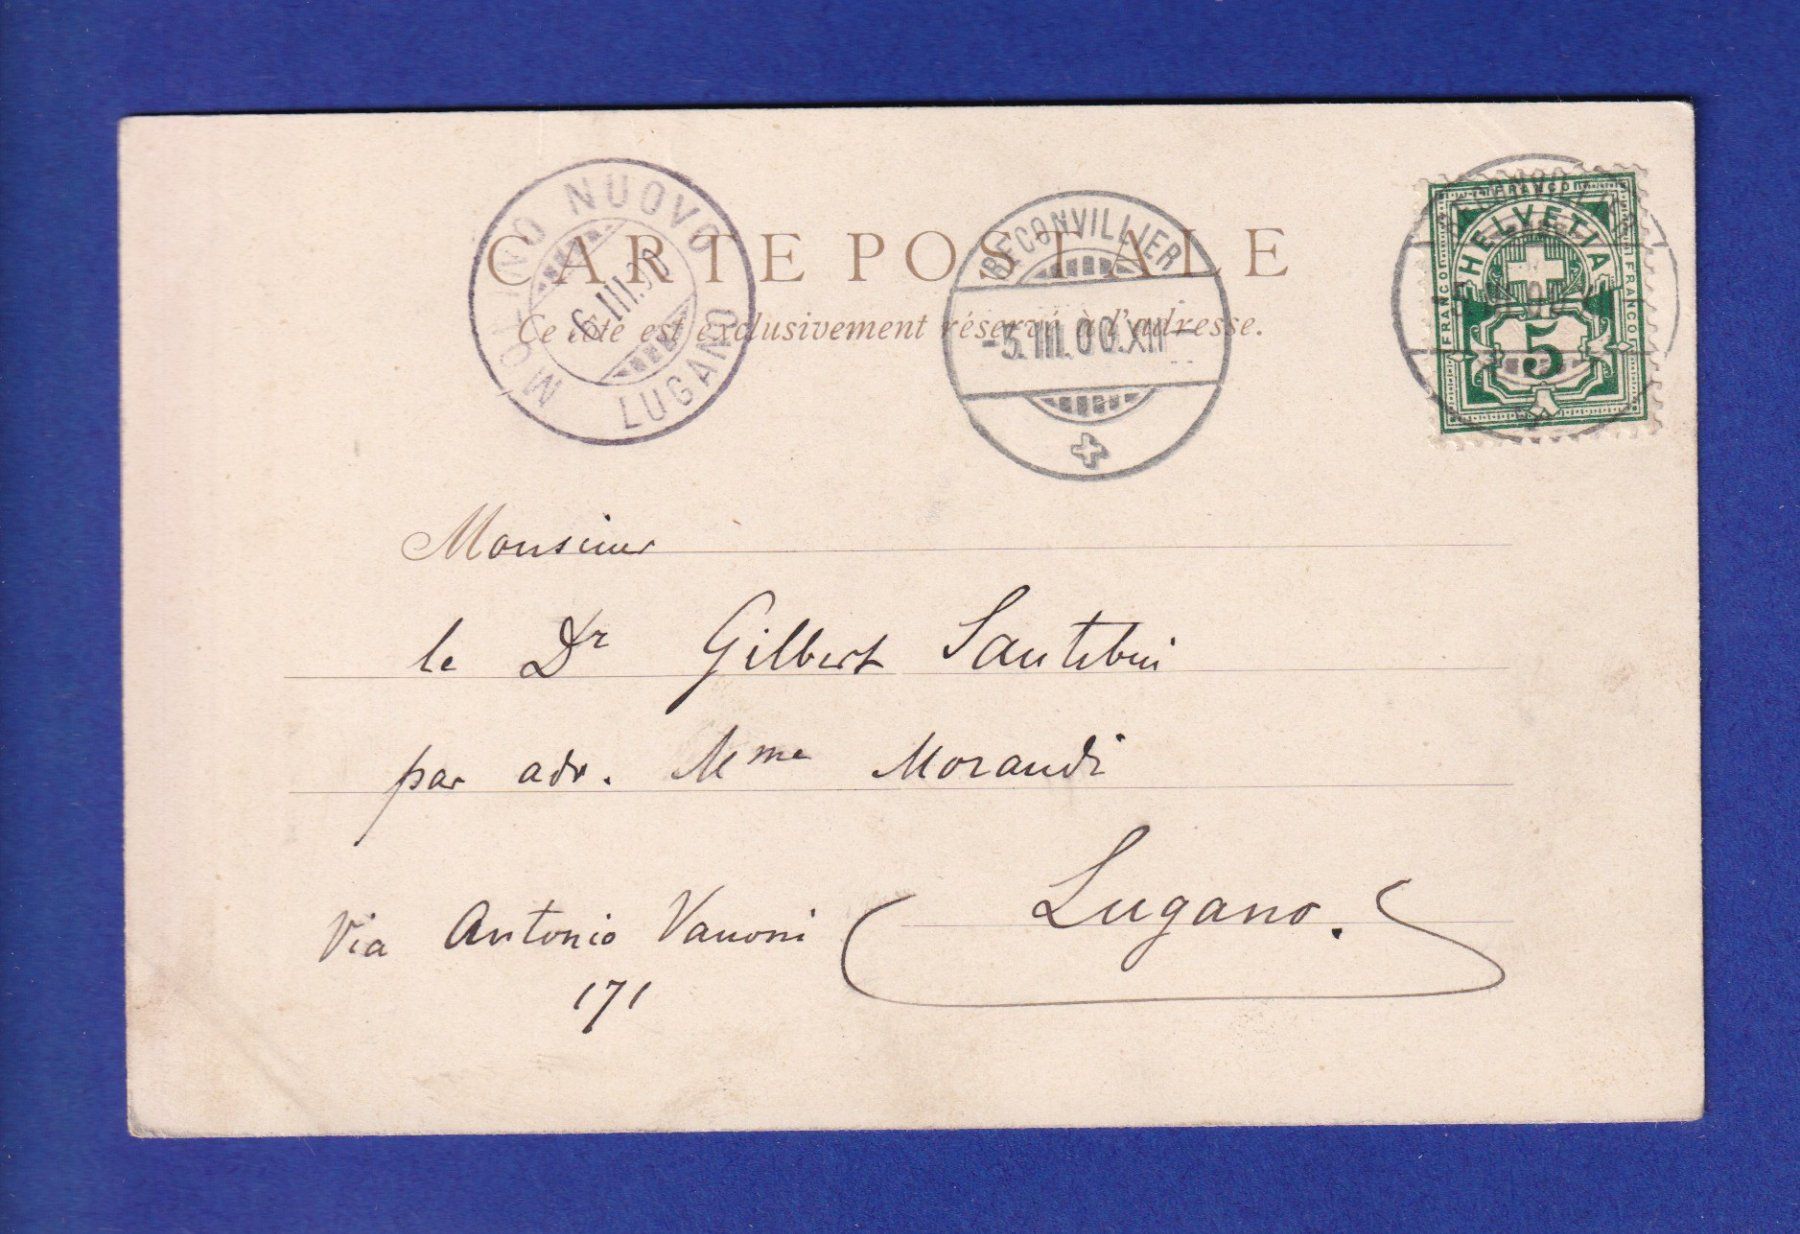 CARTE POSTALE
Ce côté est exclusivement réservé à l'adresse.
MOLINO NUOVO
6.III.00
LUGANO
RECONVILLIER
-5.III.00.XII-
FRANCO
FRANCO
FRANCO
HELVETIA
5
Monsieur
le Dr Gilbert Santebin
par adr. Mme Morandi
Lugano.
Via Antonio Vanoni
171